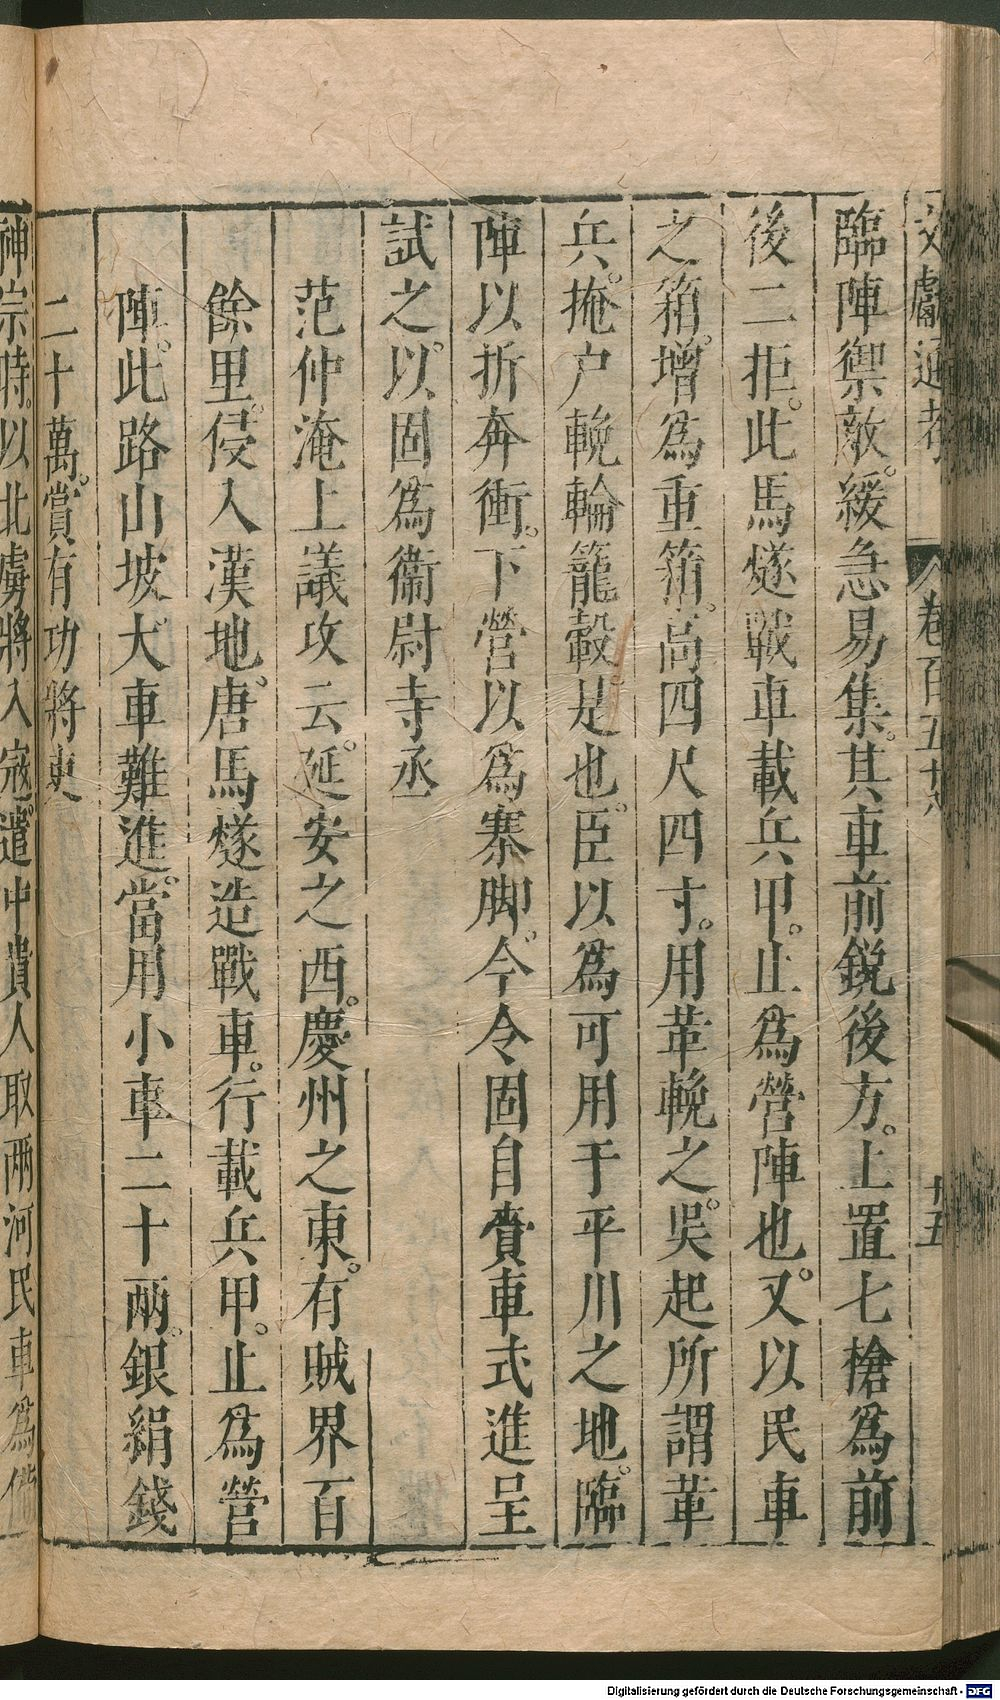 文獻通考 卷百五十八 十五
臨陣禦敵。緩急易集。其車前銳後方。上置七槍爲前
後二拒。此馬燧戰車載兵甲。止爲營陣也。又以民車
之箱。增爲重箱。高四尺四寸。用革輓之。吳起所謂革
兵。掩户輓輪籠轂是也。臣以爲可用于平川之地。臨
陣以折奔衝。下營以爲寨脚。今令固自賫車式進呈
試之。以固爲衞尉寺丞
范仲淹上議攻云。延安之西。慶州之東。有賊界百
餘里。侵入漢地。唐馬燧造戰車。行載兵甲。止爲營
陣。此路山坡大車難進。當用小車二十兩。銀絹錢
二十萬。賞有功將吏
神宗時。以北虜將入寇。遣中貴人取兩河民車爲備
Digitalisierung gefördert durch die Deutsche Forschungsgemeinschaft - DFG